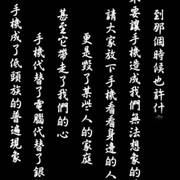 手機成了低頭族的普遍現象
手機代替了電腦代替了銀
甚至它帶走了我們的心
更是毀了某些人的家庭
請大家放下手機看看身邊的人
要讓手機造成我們無法想象的
到那個時候也許什